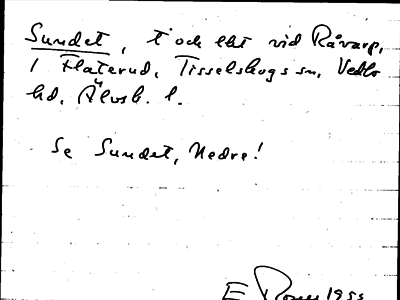 Sundet, t och lht vid Råvarp,
i Flaterud, Tisselskogs sn, Vedbo
hd, Älvsb. l.
Se Sundet, Nedre!
E 1955